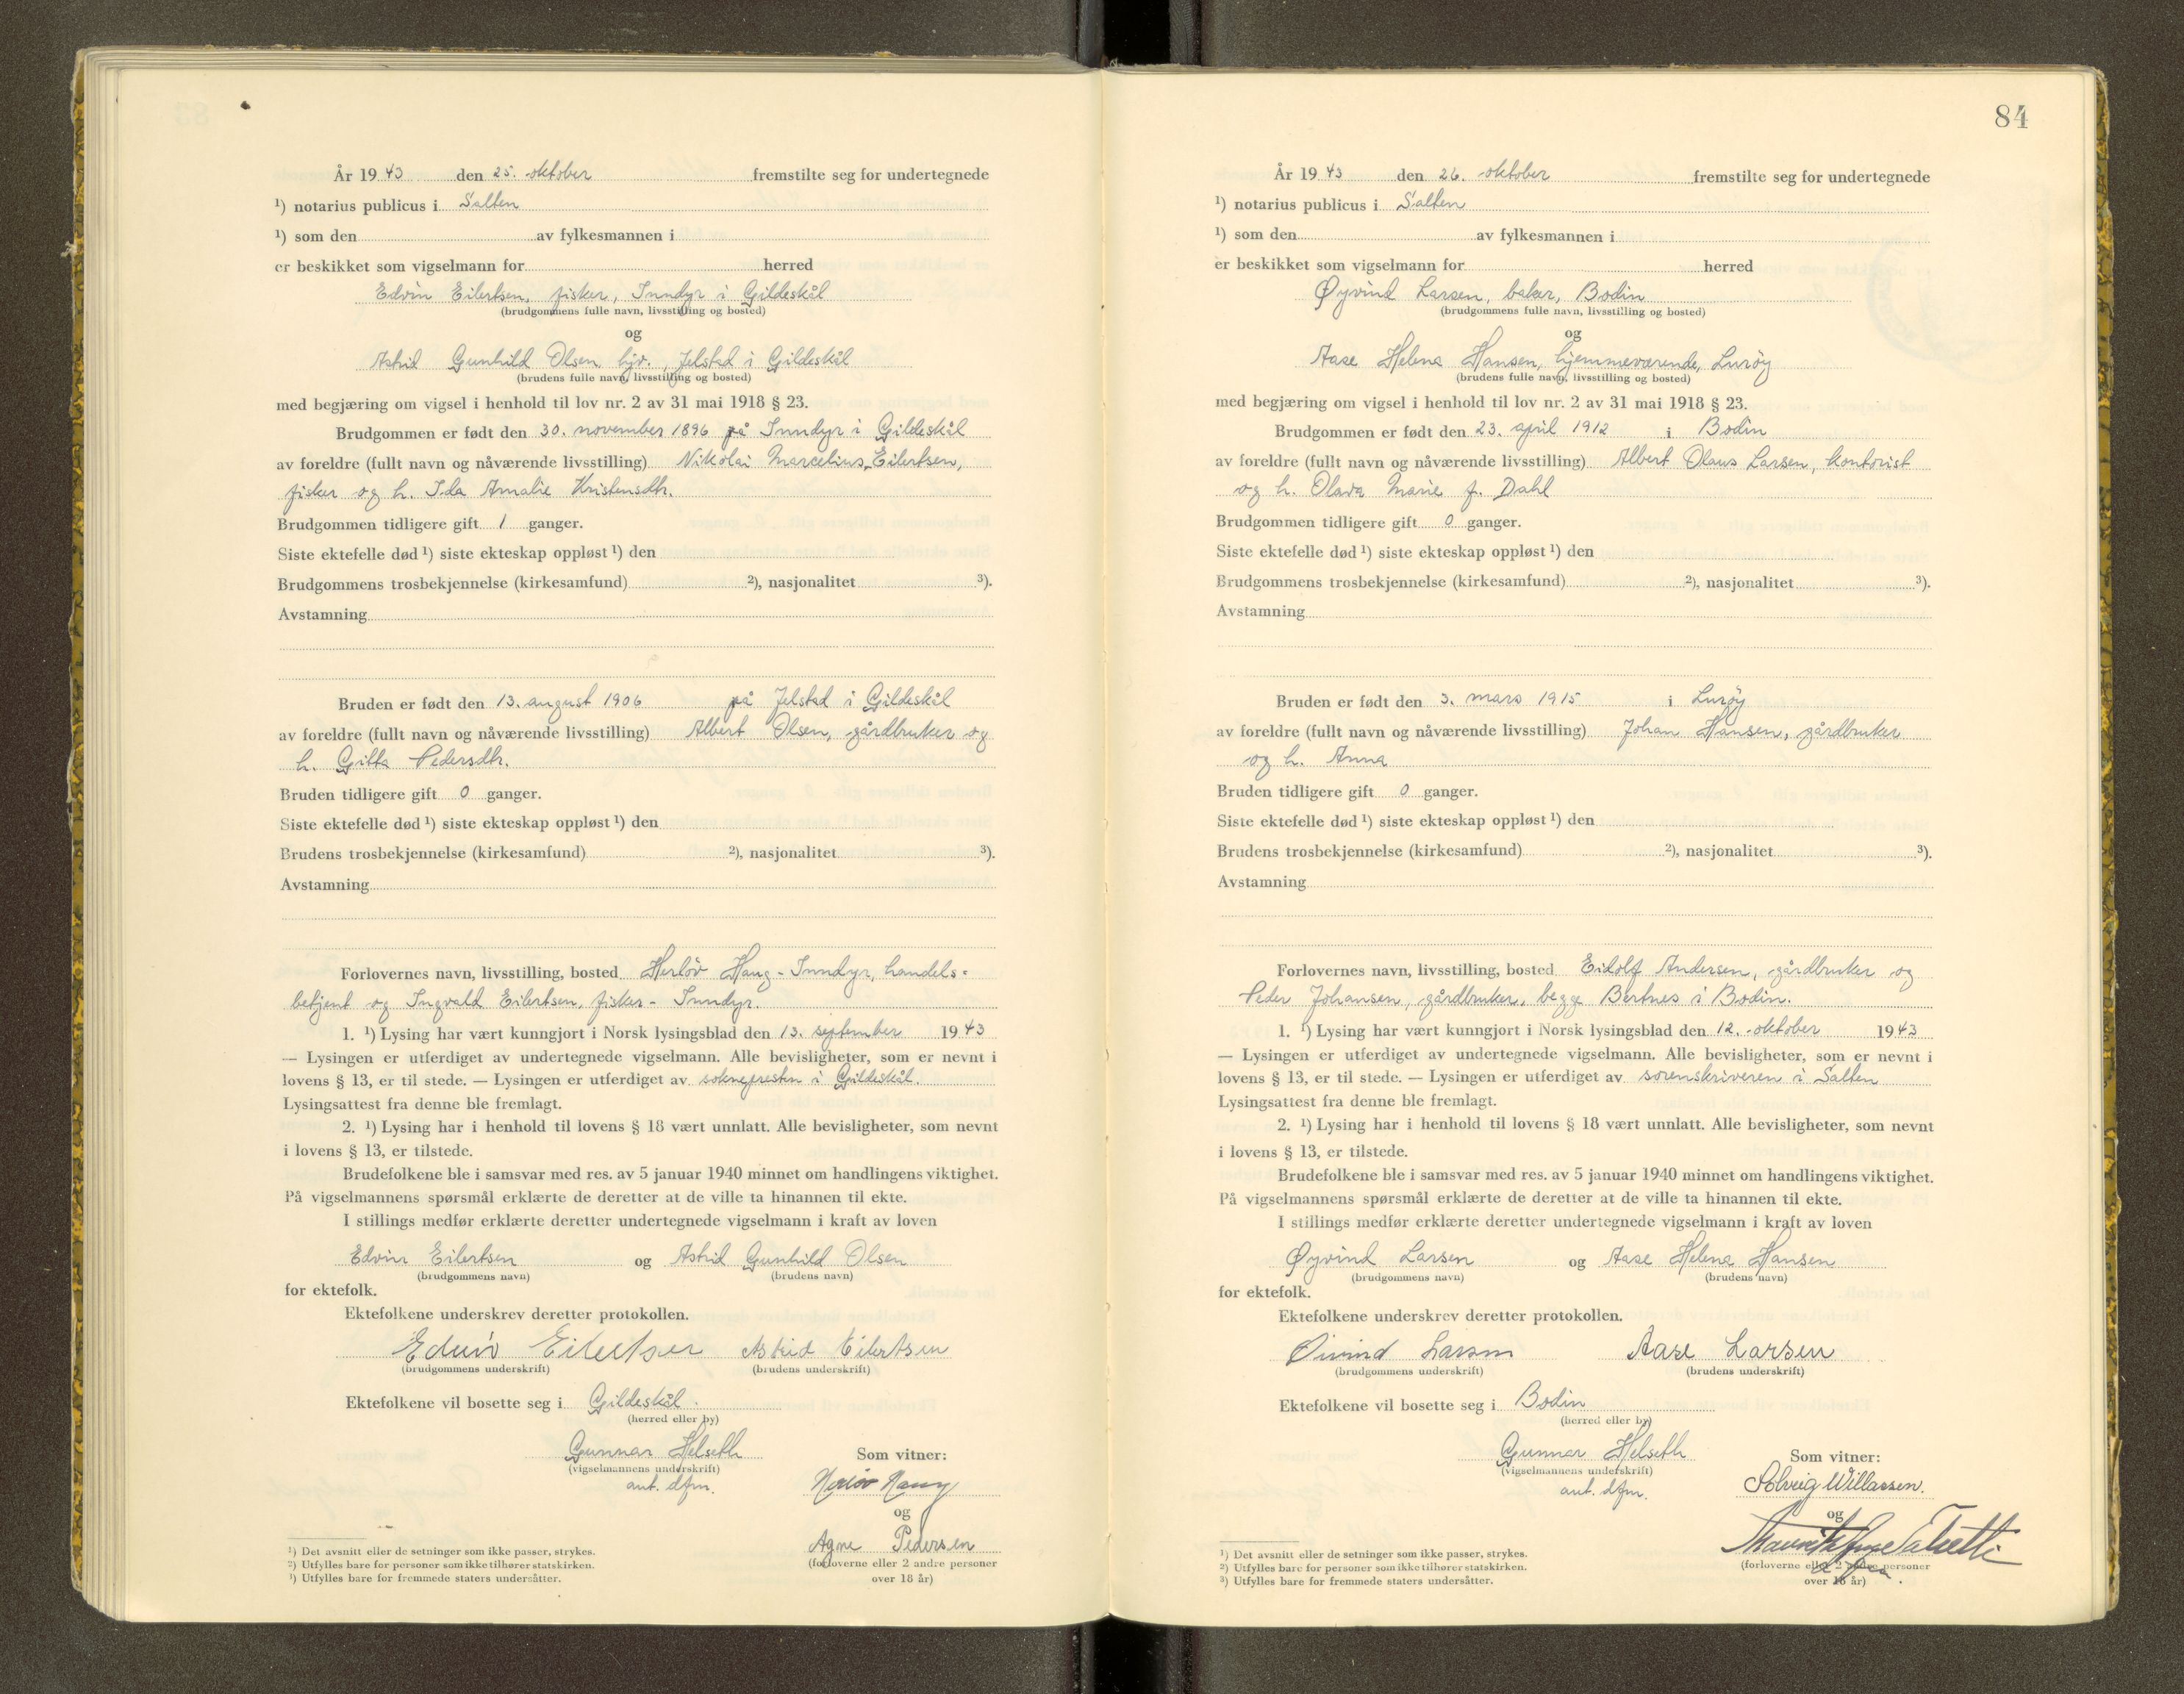 År 1943 den 25. oktober fremstilte seg for undertegnede
¹) notarius publicus i Salten
¹) som den av fylkesmannen i
er beskikket som vigselmann for herred
Edvin Eilertsen, fisker, Inndyr i Gildeskål
(brudgommens fulle navn, livsstilling og bosted)
og
Astrid Gunhild Olsen hjv., Jelstad i Gildeskål
(brudens fulle navn, livsstilling og bosted)
med begjæring om vigsel i henhold til lov nr. 2 av 31 mai 1918 § 23.
Brudgommen er født den 30. november 1896 på Inndyr i Gildeskål
av foreldre (fullt navn og nåværende livsstilling) Nikolai Marcelius Eilertsen,
fisker og h. Ida Amalie Kristensdtr.
Brudgommen tidligere gift 1 ganger.
Siste ektefelle død ¹) siste ekteskap oppløst ¹) den
Brudgommens trosbekjennelse (kirkesamfund) ²), nasjonalitet ³).
Avstamning
Bruden er født den 13. august 1906 på Jelstad i Gildeskål
av foreldre (fullt navn og nåværende livsstilling) Albert Olsen, gårdbruker og
h. Gitta Pedersdtr.
Bruden tidligere gift 0 ganger.
Siste ektefelle død ¹) siste ekteskap oppløst ¹) den
Brudens trosbekjennelse (kirkesamfund) ²), nasjonalitet ³).
Avstamning
Forlovernes navn, livsstilling, bosted Herløv Haug - Inndyr, handels-
betjent og Ingvald Eilertsen, fisker - Inndyr.
1. ¹) Lysing har vært kunngjort i Norsk lysingsblad den 13. september 1943
— Lysingen er utferdiget av undertegnede vigselmann. Alle bevisligheter, som er nevnt i
lovens § 13, er til stede. — Lysingen er utferdiget av sokneprestn i Gildeskål.
Lysingsattest fra denne ble fremlagt.
2. ¹) Lysing har i henhold til lovens § 18 vært unnlatt. Alle bevisligheter, som nevnt
i lovens § 13, er tilstede.
Brudefolkene ble i samsvar med res. av 5 januar 1940 minnet om handlingens viktighet.
På vigselmannens spørsmål erklærte de deretter at de ville ta hinannen til ekte.
I stillings medfør erklærte deretter undertegnede vigselmann i kraft av loven
Edvin Eilertsen og Astrid Gunhild Olsen
(brudgommens navn) (brudens navn)
for ektefolk.
Ektefolkene underskrev deretter protokollen.
Edvin Eilertsen Astrid Eilertsen
(brudgommens underskrift) (brudens underskrift)
Ektefolkene vil bosette seg i Gildeskål.
(herred eller by)
Gunnar Helseth Som vitner:
(vigselmannens underskrift)
aut. dfm. Herløv Haug
og
Agne Pedersen
(forloverne eller 2 andre personer
over 18 år)
¹) Det avsnitt eller de setninger som ikke passer, strykes.
²) Utfylles bare for personer som ikke tilhører statskirken.
¹) Utfylles bare for fremmede staters undersåtter.
84
År 1943 den 26. oktober fremstilte seg for undertegnede
¹) notarius publicus i Salten
¹) som den av fylkesmannen i
er beskikket som vigselmann for herred
Øyvind Larsen, baker, Bodin
(brudgommens fulle navn, livsstilling og bosted)
og
Aase Helena Hansen, hjemmeværende, Lurøy
(brudens fulle navn, livsstilling og bosted)
med begjæring om vigsel i henhold til lov nr. 2 av 31 mai 1918 § 23.
Brudgommen er født den 23. april 1912 i Bodin
av foreldre (fullt navn og nåværende livsstilling) Albert Olaus Larsen, kontorist
og h. Olava Marie f. Dahl
Brudgommen tidligere gift 0 ganger.
Siste ektefelle død ¹) siste ekteskap oppløst ¹) den
Brudgommens trosbekjennelse (kirkesamfund) ²), nasjonalitet ³).
Avstamning
Bruden er født den 3. mars 1915 i Lurøy
av foreldre (fullt navn og nåværende livsstilling) Johan Hansen, gårdbruker
og h. Anna
Bruden tidligere gift 0 ganger.
Siste ektefelle død ¹) siste ekteskap oppløst ¹) den
Brudens trosbekjennelse (kirkesamfund) ²), nasjonalitet ³).
Avstamning
Forlovernes navn, livsstilling, bosted Eidolf Andersen, gårdbruker og
Peder Johansen, gårdbruker, begge Bertnes i Bodin.
1. ¹) Lysing har vært kunngjort i Norsk lysingsblad den 12. oktober 1943
— Lysingen er utferdiget av undertegnede vigselmann. Alle bevisligheter, som er nevnt i
lovens § 13, er til stede. — Lysingen er utferdiget av sorenskriveren i Salten
Lysingsattest fra denne ble fremlagt.
2. ¹) Lysing har i henhold til lovens § 18 vært unnlatt. Alle bevisligheter, som nevnt
i lovens § 13, er tilstede.
Brudefolkene ble i samsvar med res. av 5 januar 1940 minnet om handlingens viktighet.
På vigselmannens spørsmål erklærte de deretter at de ville ta hinannen til ekte.
I stillings medfør erklærte deretter undertegnede vigselmann i kraft av loven
Øyvind Larsen og Aase Helena Hansen
(brudgommens navn) (brudens navn)
for ektefolk.
Ektefolkene underskrev deretter protokollen.
Øivind Larsen Aase Larsen
(brudgommens underskrift) (brudens underskrift)
Ektefolkene vil bosette seg i Bodin
(herred eller by)
Gunnar Helseth Som vitner:
(vigselmannens underskrift)
aut. dfm. Solveig Willassen.
og
(forloverne eller 2 andre personer
over 18 år)
¹) Det avsnitt eller de setninger som ikke passer, strykes.
²) Utfylles bare for personer som ikke tilhører statskirken.
³) Utfylles bare for fremmede staters undersåtter.